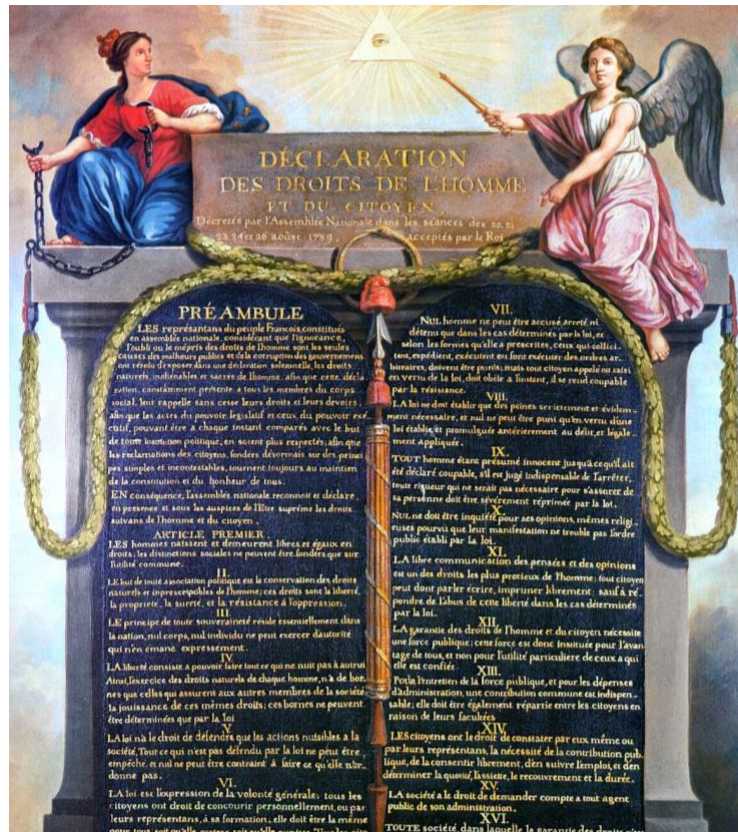 DÉCLARATION
DES DROITS DE L'HOMME
ET DU CITOYEN
Décretés par l'Assemblée Nationale dans les séances des 20, 21
23, 24 et 26 août 1789, acceptés par le Roi
PRÉAMBULE
LES représantans du peuple Francois, constitués
en assemblée nationale, considérant que l'ignorance,
l'oubli ou le mépris des droits de l'homme sont les seules
causes des malheurs publics et de la corruption des gouvernemens
ont résolu d'exposer dans une déclaration solemnelle, les droits
naturels, inaliénables et sacrés de l'homme, afin que cette décla
ration, constamment présente a tous les membres du corps
social, leur rappelle sans cesse leurs droits et leurs devoirs,
afin que les actes du pouvoir législatif et ceux du pouvoir exé
cutif, pouvant être a chaque instant comparés avec le but
de toute institution politique, en soient plus respectés; afin que
les réclamations des citoyens, fondées désormais sur des princi
pes simples et incontestables, tournent toujours au maintien
de la constitution et du bonheur de tous.
EN conséquence, l'assemblée nationale reconnoit et déclare,
en presence et sous les auspices de l'Etre suprême les droits
suivans de l'homme et du citoyen.
ARTICLE PREMIER.
LES hommes naissent et demeurent libres et égaux en
droits; les distinctions sociales ne peuvent être fondées que sur
l'utilité commune.
II.
LE but de toute association politique est la conservation des droits
naturels et imprescriptibles de l'homme; ces droits sont la liberté,
la propriete, la sureté, et la résistance à l'oppression.
III.
LE principe de toute souveraineté réside essentiellement dans
la nation, nul corps, nul individu ne peut exercer d'autorité
qui n'en émane expressement.
IV.
LA liberté consiste a pouvoir faire tout ce qui ne nuit pas à autrui
Ainsi, l'exercice des droits naturels de chaque homme, n'a de bor
nes que celles qui assurent aux autres membres de la société
la jouissance de ces mêmes droits; ces bornes ne peuvent
être déterminées que par la loi
V.
LA loi n'a le droit de défendre que les actions nuisibles a la
société, Tout ce qui n'est pas défendu par la loi ne peut être
empêché, et nul ne peut être contraint à faire ce qu'elle n'or
donne pas.
VI.
LA loi est l'expression de la volonté générale; tous les
citoyens ont droit de concourir personnellement, ou par
leurs représentans, à sa formation; elle doit être la même
pour tous, soit qu'elle protege, soit qu'elle
VII.
NUL homme ne peut être accusé, arreté, ni
détenu que dans les cas déterminés par la loi, et
selon les formes qu'elle a prescrites, ceux qui sollici-
tent, expédient, exécutent ou font exécuter des ordres ar-
bitraires, doivent être punis; mais tout citoyen appelé ou saisi
en vertu de la loi, doit obéir a l'instant, il se rend coupable
par la résistance.
VIII.
LA loi ne doit établir que des peines strictement et évidem-
ment nécessaire, et nul ne peut être puni qu'en vertu d'une
loi établie, et promulguée antérierement au délit, et légale-
ment appliquée.
IX.
TOUT homme étant présumé innocent jusqu'a ce qu'il ait
été déclaré coupable, s'il est jugé indispensable de l'arrêter,
toute rigueur qui ne serait pas nécessaire pour s'assurer de
sa personne doit être sévèrement réprimée par la loi.
X.
NUL ne doit être inquiété pour ses opinions, mêmes religi-
euses pourvu que leur manifestation ne trouble pas l'ordre
public établi par la loi.
XI.
LA libre communication des pensées et des opinions
est un des droits les plus precieux de l'homme; tout citoyen
peut dont parler écrire, imprimer librement; sauf à ré-
pondre de l'abus de cette liberté dans les cas déterminés
par la loi.
XII.
LA garantie des droits de l'homme et du citoyen nécessite
une force publique; cette force est donc instituée pour l'avan-
tage de tous, et non pour l'utilité particuliere de ceux a qui
elle est confiée.
XIII.
Pour l'entretien de la force publique, et pour les dépenses
d'administration, une contribution commune est indispen-
sable; elle doit être également répartie entre les citoyens en
raison de leurs facultées
XIV.
LES citoyens ont le droit de constater par eux même ou
par leurs représentans, la nécessité de la contribution pub-
lique, de la consentir librement, d'en suivre l'emploi, et d'en
déterminer la quotité, l'assiette, le recouvrement et la durée.
XV.
LA société a le droit de demander compte a tout agent
public de son administration.
XVI.
TOUTE société, dans laquelle la garantie des droits n'est